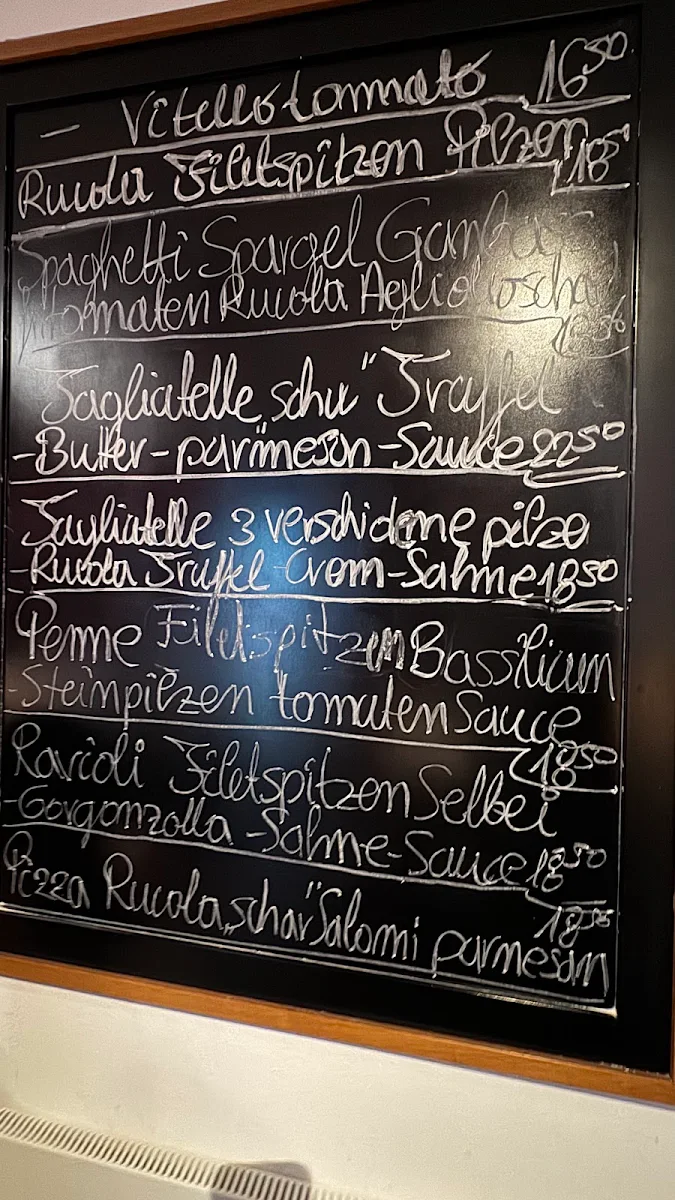 - Vitello tonnato 16⁵⁰
Rucola Filetspitzen Pilzen
18⁵⁰
Spaghetti Spargel Gamba-
tomaten Rucola Aglio
Tagliatelle „schu" Trüffel
-Butter-parmesan-Sauce 22⁵⁰
Tagliatelle 3 verschidene pilze
-Rucola Trüffel Crem-Sahne 18⁵⁰
Penne Filetspitzen Bassilicum
-Steinpilzen tomaten Sauce
18⁵⁰
Ravioli Filetspitzen Selbei
-Gorgonzolla-Sahne-Sauce 18⁵⁰
18⁵⁰
Pizza Rucola „schar" Salami parmesan